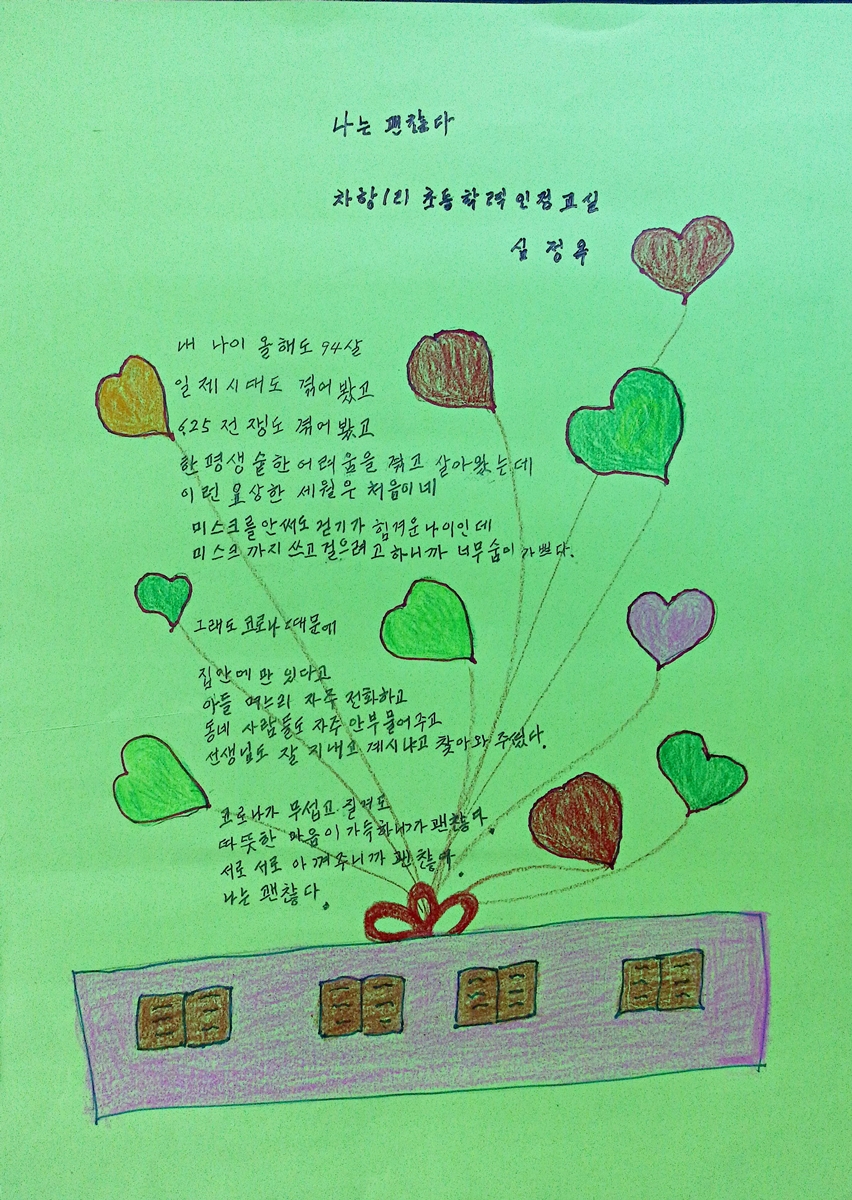 나는 괜찮다
차항1리 초등학력인정교실
심정옥
내 나이 올해도 94살
일제시대도 겪어 봤고
6.25 전쟁도 겪어 봤고
한평생 숱한 어려움을 겪고 살아왔는데
이런 요상한 세월은 처음이네
미스크를 안써도 걷기가 힘겨운 나이인데
미스크까지 쓰고 걸으려고 하니까 너무 숨이 가쁘다.
그래도 코로나 때문에
집안에만 있다고
아들 며느리 자주 전화하고
동네 사람들도 자주 안부 물어주고
선생님도 잘 지내고 계시냐고 찾아와 주셨다.
코로나가 무섭고 질겨도
따뜻한 마음이 가득하니까 괜찮다.
서로 서로 아껴주니까 괜찮다.
나는 괜찮다.